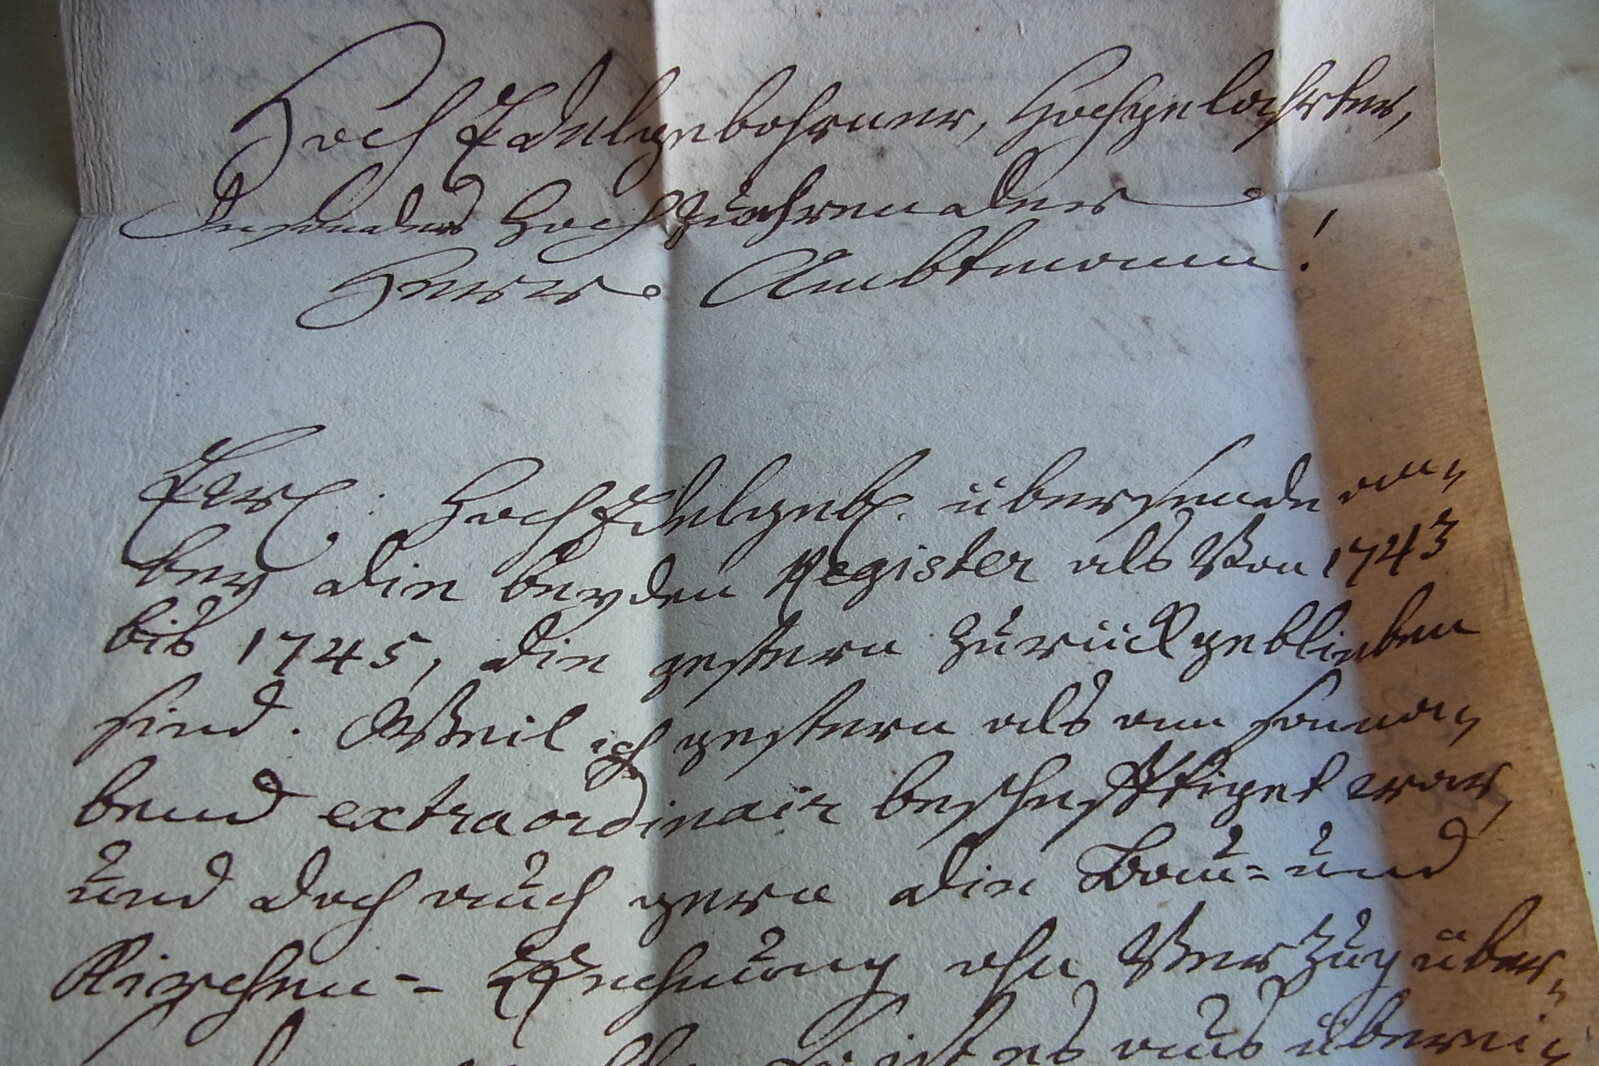 Hoch Edelgebohrner, Hochgelahrter,
Insonders Hochzuehrender
Herr Ambtmann!
Ew. HochEdelgeb. übersende an-
bey die beyden Register als Von 1743
bis 1745, die gestern zurückgeblieben
sind. Weil ich gestern als am Sonna-
bend extraordinair beschefftiget war,
und doch auch gern die Bau- und
Kirchen-Rechnung ohn Verzug über-
ist es aus überei-